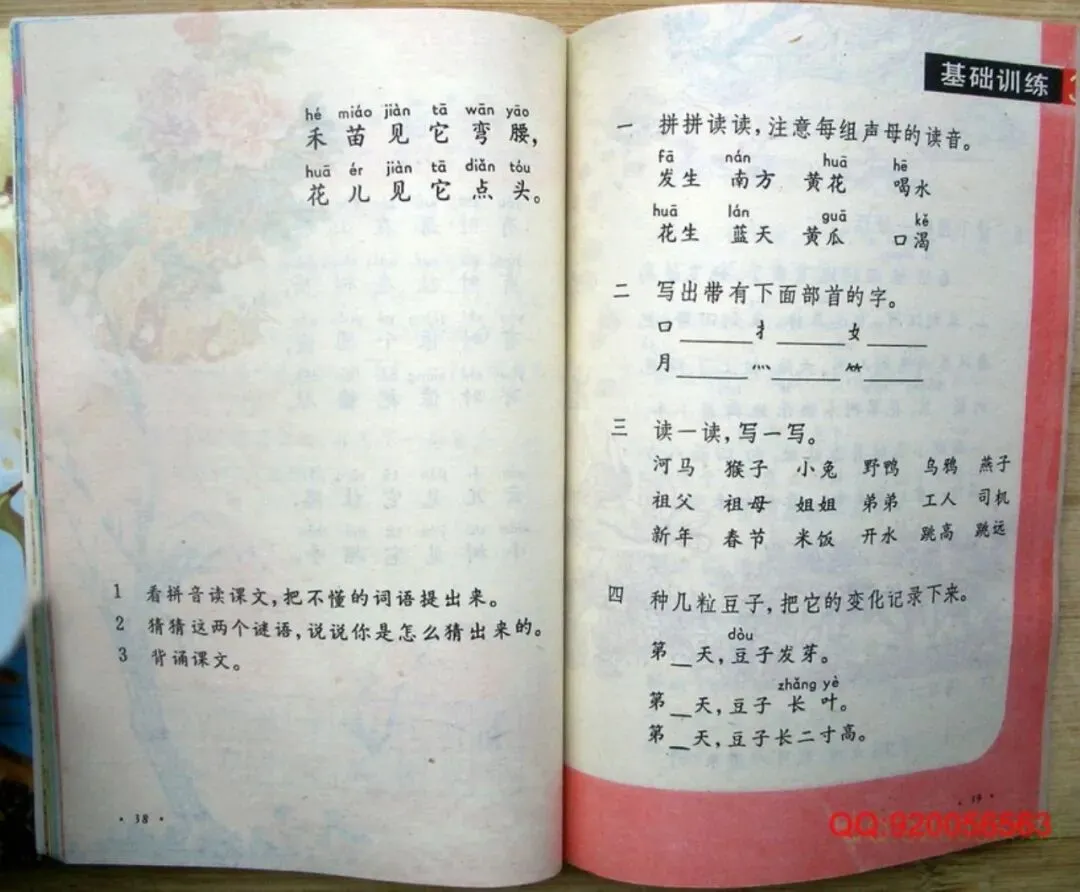 hé miáo jiàn tā wān yāo
禾苗见它弯腰，
huā ér jiàn tā diǎn tóu
花儿见它点头。
1 看拼音读课文，把不懂的词语提出来。
2 猜猜这两个谜语，说说你是怎么猜出来的。
3 背诵课文。
· 38 ·
基础训练 3
一 拼拼读读，注意每组声母的读音。
fā nán huā hē
发生 南方 黄花 喝水
huā lán guā kě
花生 蓝天 黄瓜 口渴
二 写出带有下面部首的字。
口____ 扌____ 女____
月____ 灬____ ⺮____
三 读一读，写一写。
河马 猴子 小兔 野鸭 乌鸦 燕子
祖父 祖母 姐姐 弟弟 工人 司机
新年 春节 米饭 开水 跳高 跳远
四 种几粒豆子，把它的变化记录下来。
dòu
第__天，豆子发芽。
zhǎng yè
第__天，豆子 长 叶。
第__天，豆子长二寸高。
· 39 ·